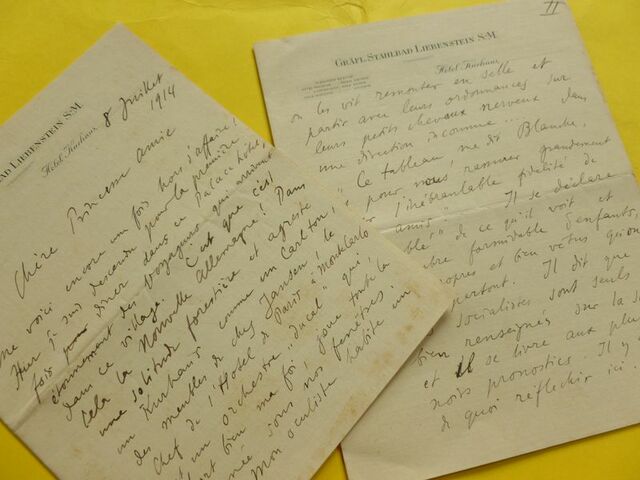 AD LIEBENSTEIN S-M
Hotel Kurhaus
8 Juillet
1914
Chère Princesse Amie
Me voici encore une fois hors d'affaire!
Hier je suis descendu pour la première
fois pour dîner dans ce Palace hôtel,
étonnement des voyageurs qui arrivent
dans ce village. C'est que c'est
cela la Nouvelle Allemagne! Dans
une solitude forestière et agreste
un Kurhaus comme un Carlton!
des meubles de chez Jansen! le
chef de l'Hotel de Paris à MonteCarlo
et un orchestre "ducal" qui
fort bien ma foi, joue toute la
née sous nos fenêtres!
Mon oculiste habite un
II
GRÄFL. STAHLBAD LIEBENSTEIN S-M
Hotel Kurhaus
on les vit remonter en selle et
partir avec leurs ordonnances sur
leurs petits chevaux nerveux dans
une direction inconnue...
ce tableau, me dit Blanche,
pour nous rassurer grandement
l'inébranlable fidélité de
amis". Il se déclare
" de ce qu'il voit et
bre formidable d'enfants,
propres et bien vêtus qu'on
partout. Il dit que
socialistes sont seuls
bien renseignés sur la
et Il se livre aux plus
noirs pronostics. Il y a
de quoi réfléchir ici.